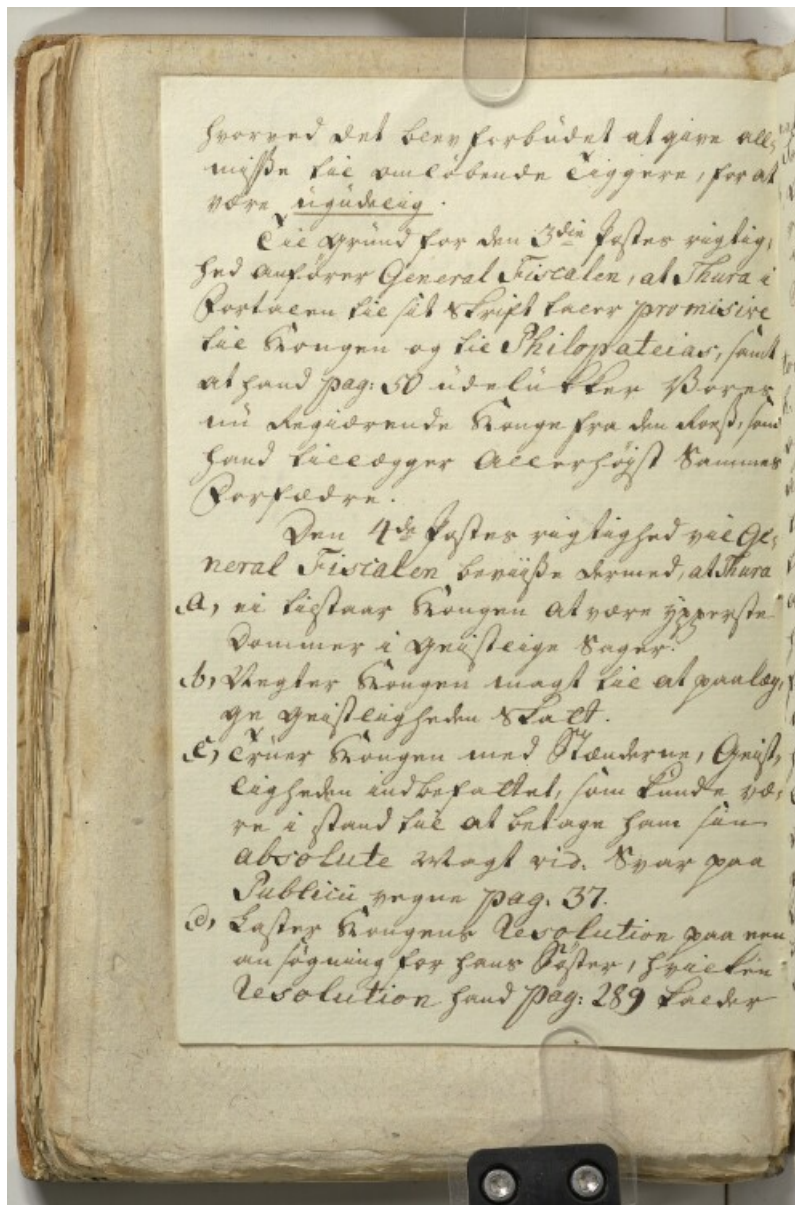 hvorved det blev forbudet at give all,
misse til omløbende Tiggere, for at
være ugudelig.
Til Grund for den 3die Postes rigtig,
hed anfører General Fiscalen, at Thura i
Fortalen til sit Skrift taler promisive
til Kongen og til Philopateias, samt
at hand pag: 50 udelukker Vores
nu Regiærende Konge fra den Roes, som
hand tillægger Allerhøist Sammes
Forfædre.
Den 4de Postes rigtighed vil Ge,
neral Fiscalen beviise dermed, at Thura
a, ei tilstaar Kongen at være ypperste
Dommer i Geistlige Sager.
b, Negter Kongen magt til at paalæg,
ge Geistligheden Skatt.
c, Truer Kongen med Stænderne, Geist,
ligheden indbefattet, som kunde væ,
re i stand til at betage ham sin
absolute Magt vid. Svar paa
Publici vegne pag. 37.
d, Laster Kongens Resolution paa een
ansøgning for hans Søster, hvilken
Resolution hand pag: 289 kalder